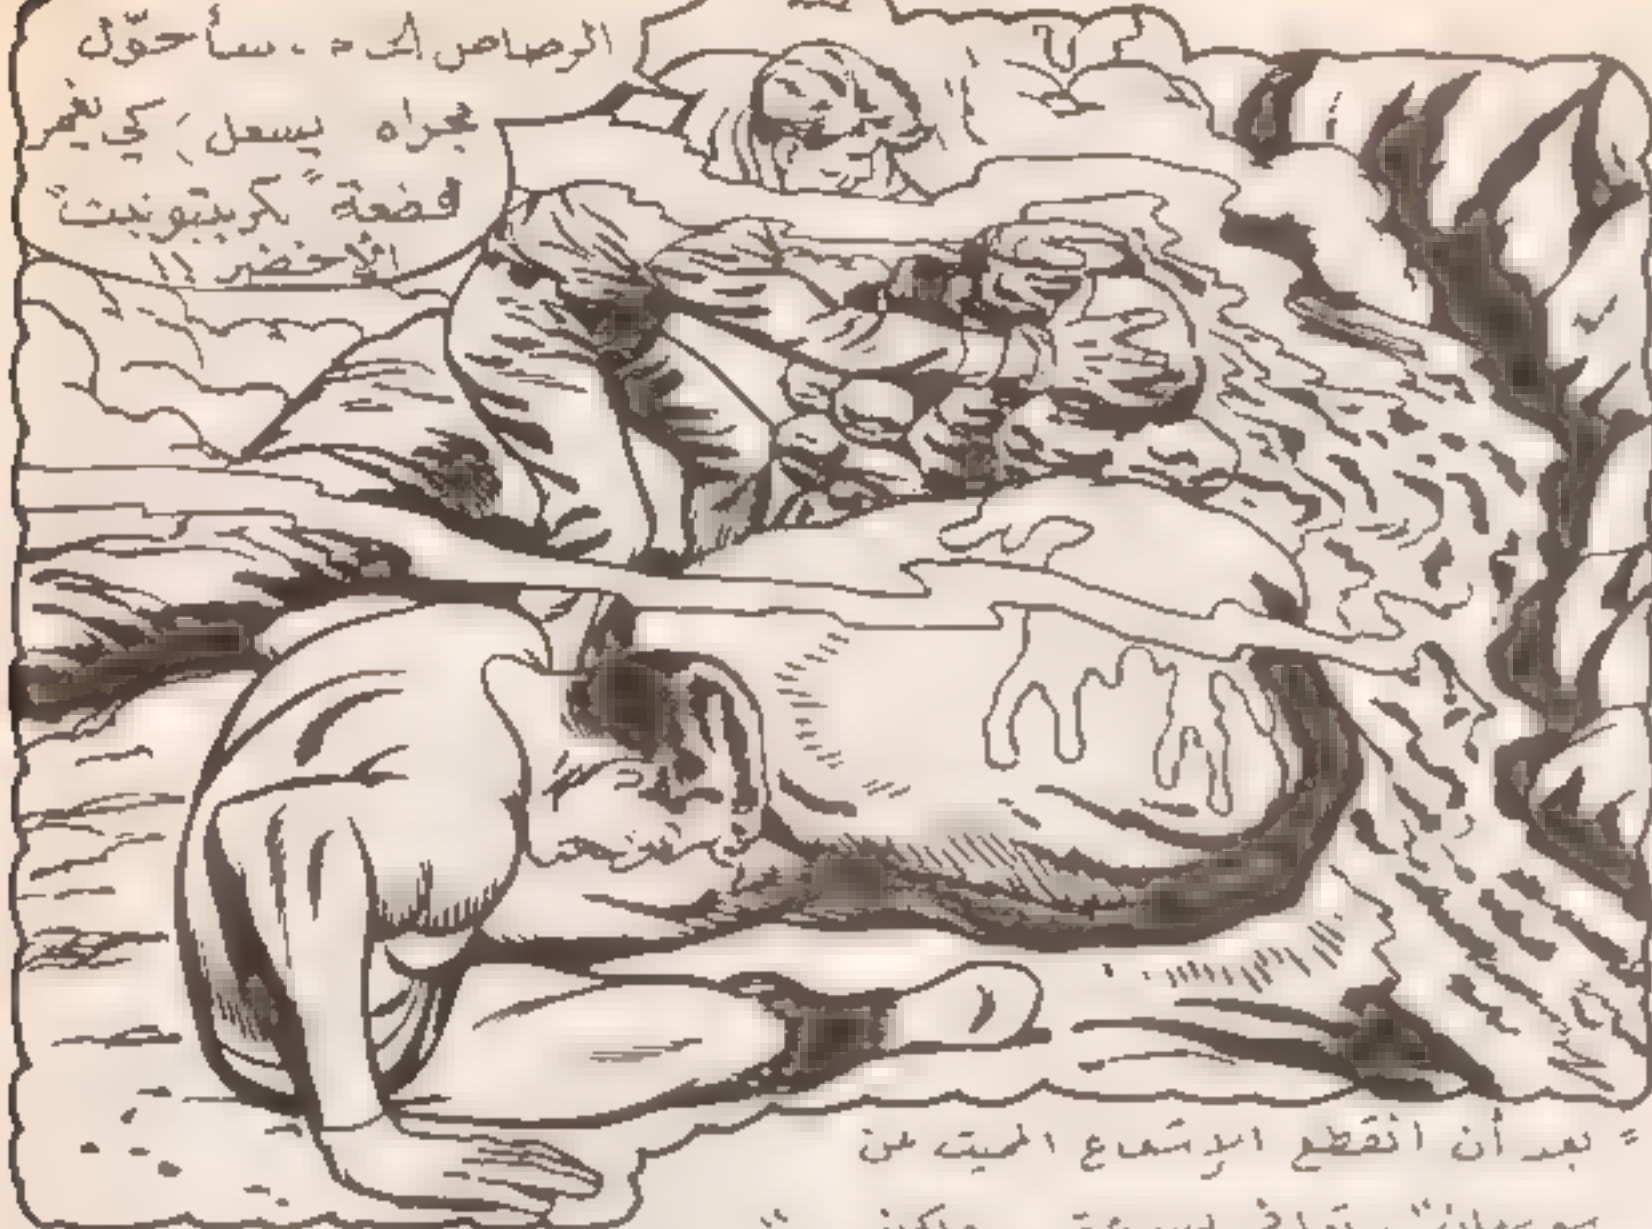 الرصاص إلى = ، سأحوّل
مجراه يسعل ، كي يغمر
قضعة "كريبتونيت"
الأخضر !!
= بعد أن انقطع الإشعاع المميت عن